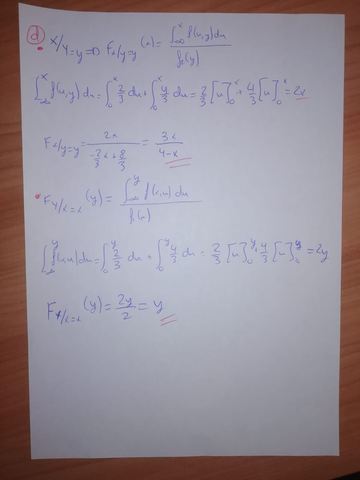 d)
• X/Y=y ⇒ F_{X/Y=y}(x) = ∫_{-∞}^{x} f(u,y) du / f_2(y)
∫_{-∞}^{x} f(u,y) du = ∫_0^x 2/3 du + ∫_0^x 4/3 du = 2/3 [u]_0^x + 4/3 [u]_0^x = 2x
F_{X/Y=y} = 2x / (-2/3 x + 8/3) = 3x / (4-x)
• F_{Y/X=x}(y) = ∫_{-∞}^{y} f(x,u) du / f_1(x)
∫_{-∞}^{y} f(x,u) du = ∫_0^y 2/3 du + ∫_0^y 4/3 du = 2/3 [u]_0^y + 4/3 [u]_0^y = 2y
F_{Y/X=x}(y) = 2y/2 = y